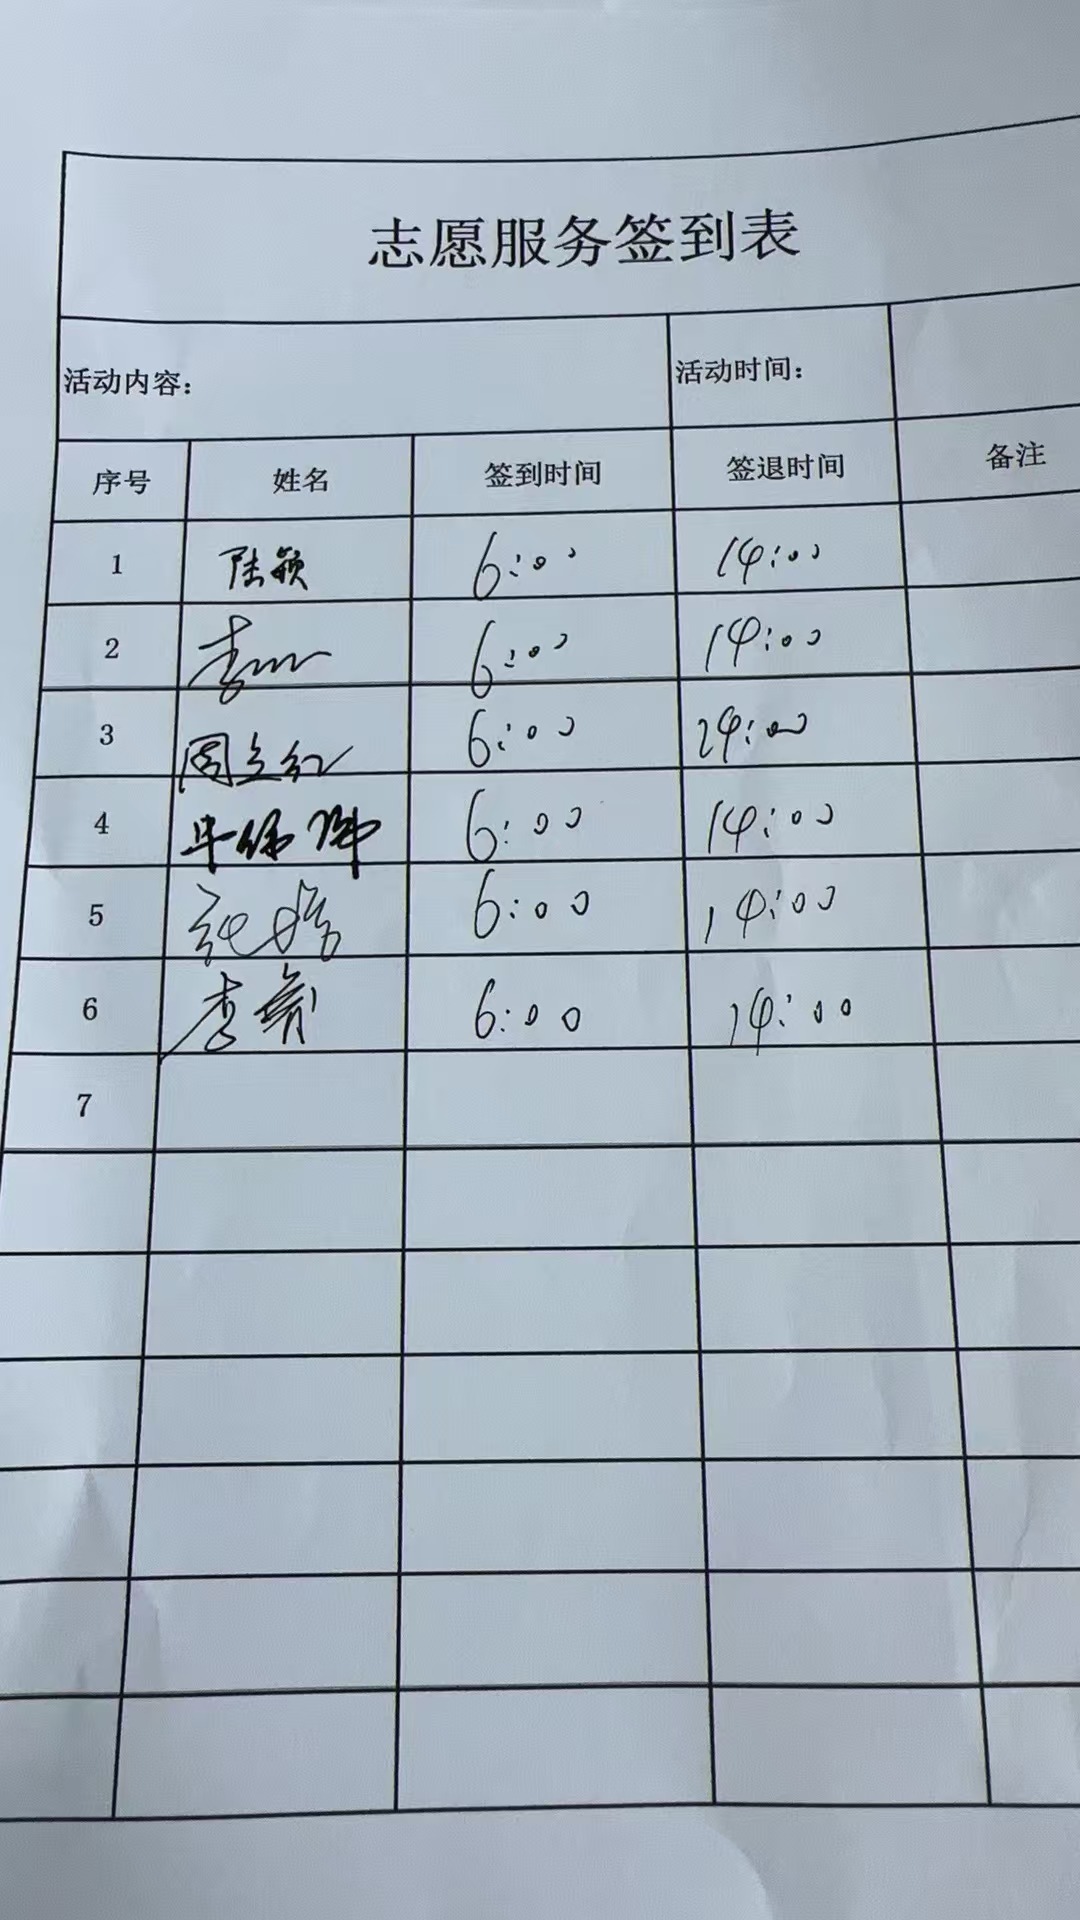 志愿服务签到表
活动内容： 活动时间：
序号 姓名 签到时间 签退时间 备注
1 陆颖 6:00 14:00
2 李 6:00 14:00
3 周立红 6:00 14:00
4 6:00 14:00
5 6:00 14:00
6 李 6:00 14:00
7